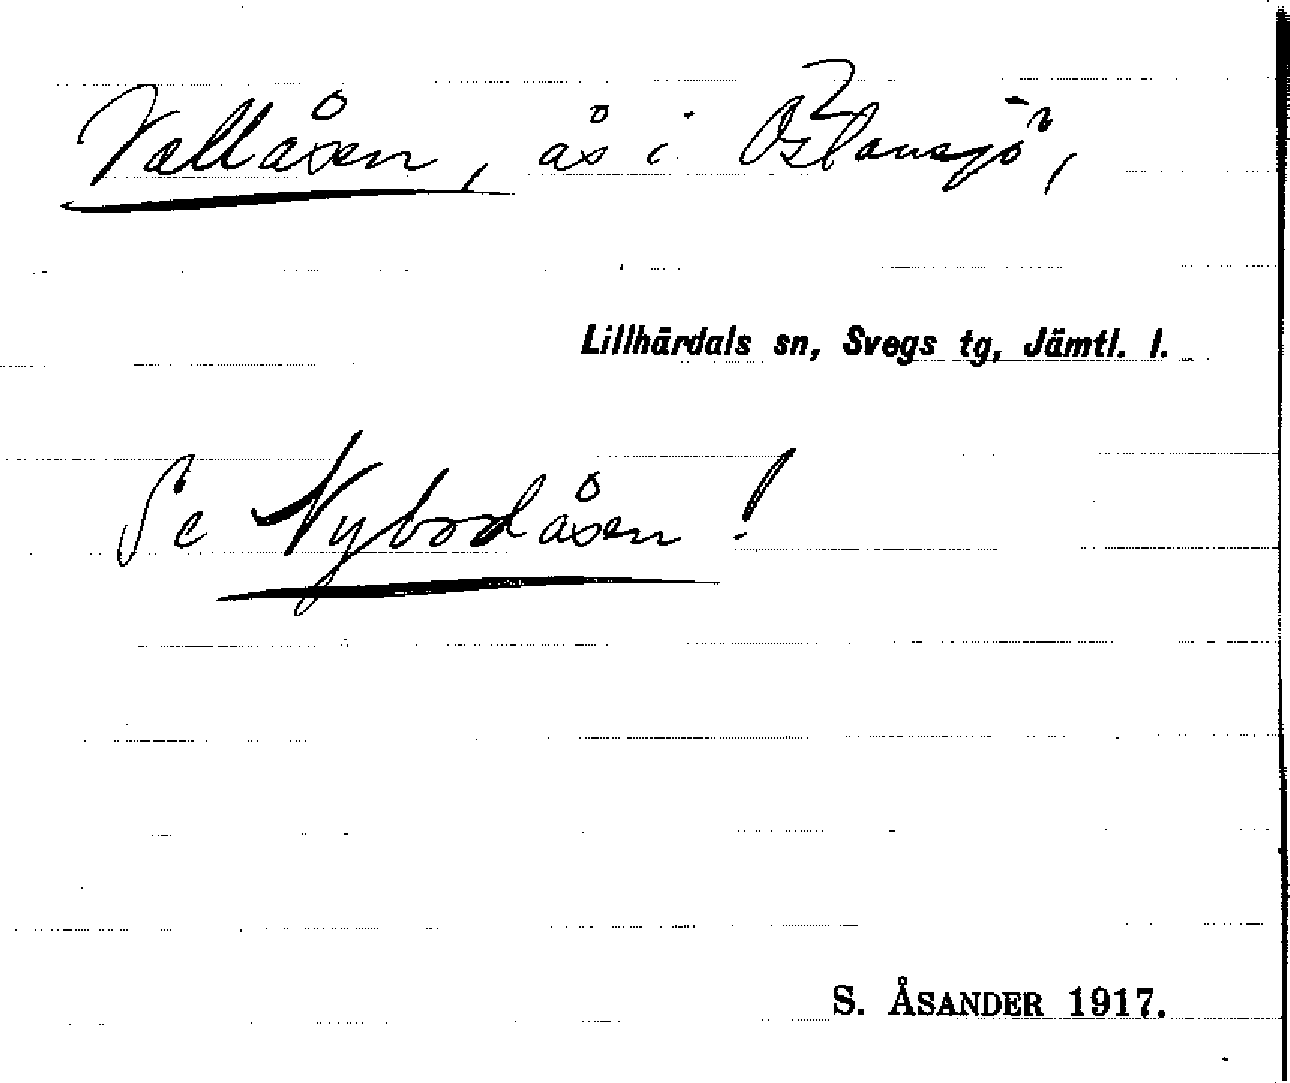 Vallåsen, ås i Östansjö,
Lillhärdals sn, Svegs tg, Jämtl. l.
Se Nybodåsen!
S. ÅSANDER 1917.